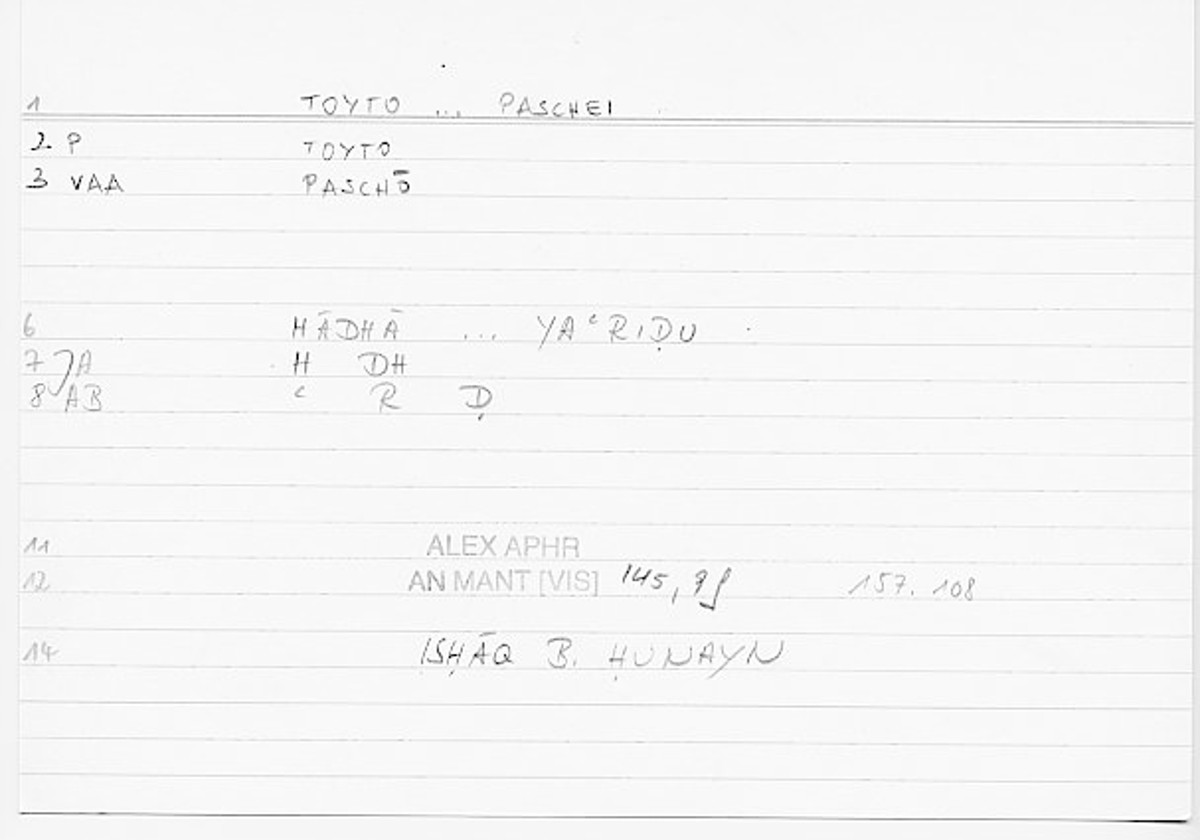 1 TOYTO ... PASCHEI
2 P TOYTO
3 VAA PASCHŌ
6 HĀDHĀ ... YAʿRIḌU
7 A H DH
8 AB ʿ R Ḍ
11 ALEX APHR
12 AN MANT [VIS] 145, 9f 157. 108
14 ISḤĀQ B. ḤUNAYN